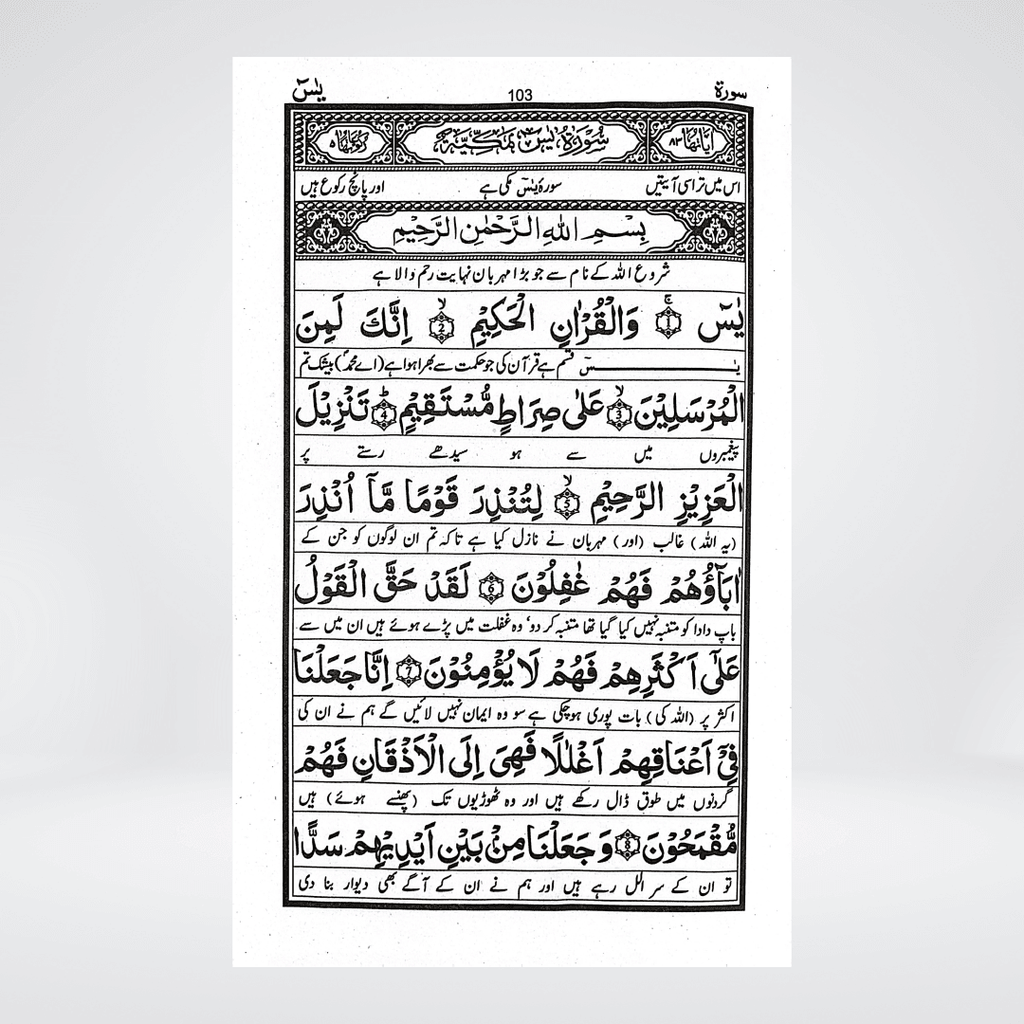 سورة 103 يٰسٓ
اٰيَاتُهَا ٨٣ سُوْرَةُ يٰسٓ مَكِّيَّةٌ رُكُوْعَاتُهَا ٥
اس میں تراسی آیتیں سورۂ یٰسٓ مکی ہے اور پانچ رکوع ہیں
بِسْمِ اللهِ الرَّحْمٰنِ الرَّحِيْمِ
شروع اللہ کے نام سے جو بڑا مہربان نہایت رحم والا ہے
يٰسٓ ۚ 1 وَالْقُرْاٰنِ الْحَكِيْمِ ۙ 2 اِنَّكَ لَمِنَ
یٰسٓ قسم ہے قرآن کی جو حکمت سے بھرا ہوا ہے (اے محمدؐ) بیشک تم
الْمُرْسَلِيْنَ ۙ 3 عَلٰى صِرَاطٍ مُّسْتَقِيْمٍ ؕ 4 تَنْزِيْلَ
پیغمبروں میں سے ہو سیدھے رستے پر
الْعَزِيْزِ الرَّحِيْمِ ۙ 5 لِتُنْذِرَ قَوْمًا مَّاۤ اُنْذِرَ
(یہ اللہ) غالب (اور) مہربان نے نازل کیا ہے تاکہ تم ان لوگوں کو جن کے
اٰبَآؤُهُمْ فَهُمْ غٰفِلُوْنَ 6 لَقَدْ حَقَّ الْقَوْلُ
باپ دادا کو متنبہ نہیں کیا گیا تھا متنبہ کر دو، وہ غفلت میں پڑے ہوئے ہیں ان میں سے
عَلٰٓى اَكْثَرِهِمْ فَهُمْ لَا يُؤْمِنُوْنَ 7 اِنَّا جَعَلْنَا
اکثر پر (اللہ کی) بات پوری ہوچکی ہے سو وہ ایمان نہیں لائیں گے ہم نے ان کی
فِيْۤ اَعْنَاقِهِمْ اَغْلٰلًا فَهِىَ اِلَى الْاَذْقَانِ فَهُمْ
گردنوں میں طوق ڈال رکھے ہیں اور وہ ٹھوڑیوں تک (پھنسے ہوئے) ہیں
مُّقْمَحُوْنَ 8 وَجَعَلْنَا مِنْۢ بَيْنِ اَيْدِيْهِمْ سَدًّا
تو ان کے سر الل رہے ہیں اور ہم نے ان کے آگے بھی دیوار بنا دی